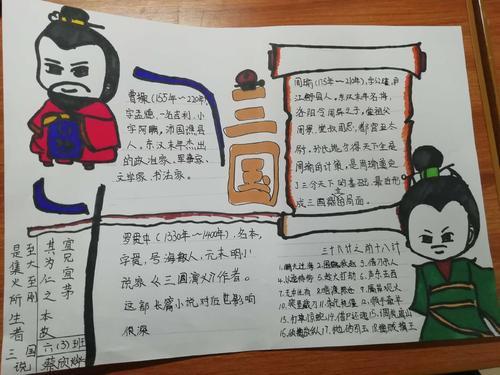 曹操(155年~220年)
字孟德,一名吉利,小
字阿瞒,沛国谯县
人,东汉末年杰出
的政治家、军事家、
文学家、书法家。
三国
周瑜(175年~210年),字公瑾,庐
江舒县人,东汉末年名将,
洛阳令周异之子,堂祖父
周景、堂叔周忠,都官至太
尉。孙氏地方得天下全是
了三分天下的基础,最后形
成三国鼎立局面。
罗贯中(1330年~1400年),名本,
字贯,号海散人,元末明初小
说家《三国演义》作者。
这部长篇小说对后世影响
很深
三十六计之前十八计
1.瞒天过海 2.围魏救赵 3.借刀杀人
4.以逸待劳 5.趁火打劫 6.声东击西
7.无中生有 8.暗渡陈仓 9.隔岸观火
10.笑里藏刀 11.李代桃僵 12.顺手牵羊
13.打草惊蛇 14.借尸还魂 15.调虎离山
16.欲擒故纵 17.抛砖引玉 18.擒贼擒王
宜兄宜弟
其为仁之本
至大至刚
是集义所生者
三国说
六(3)班
蔡欣